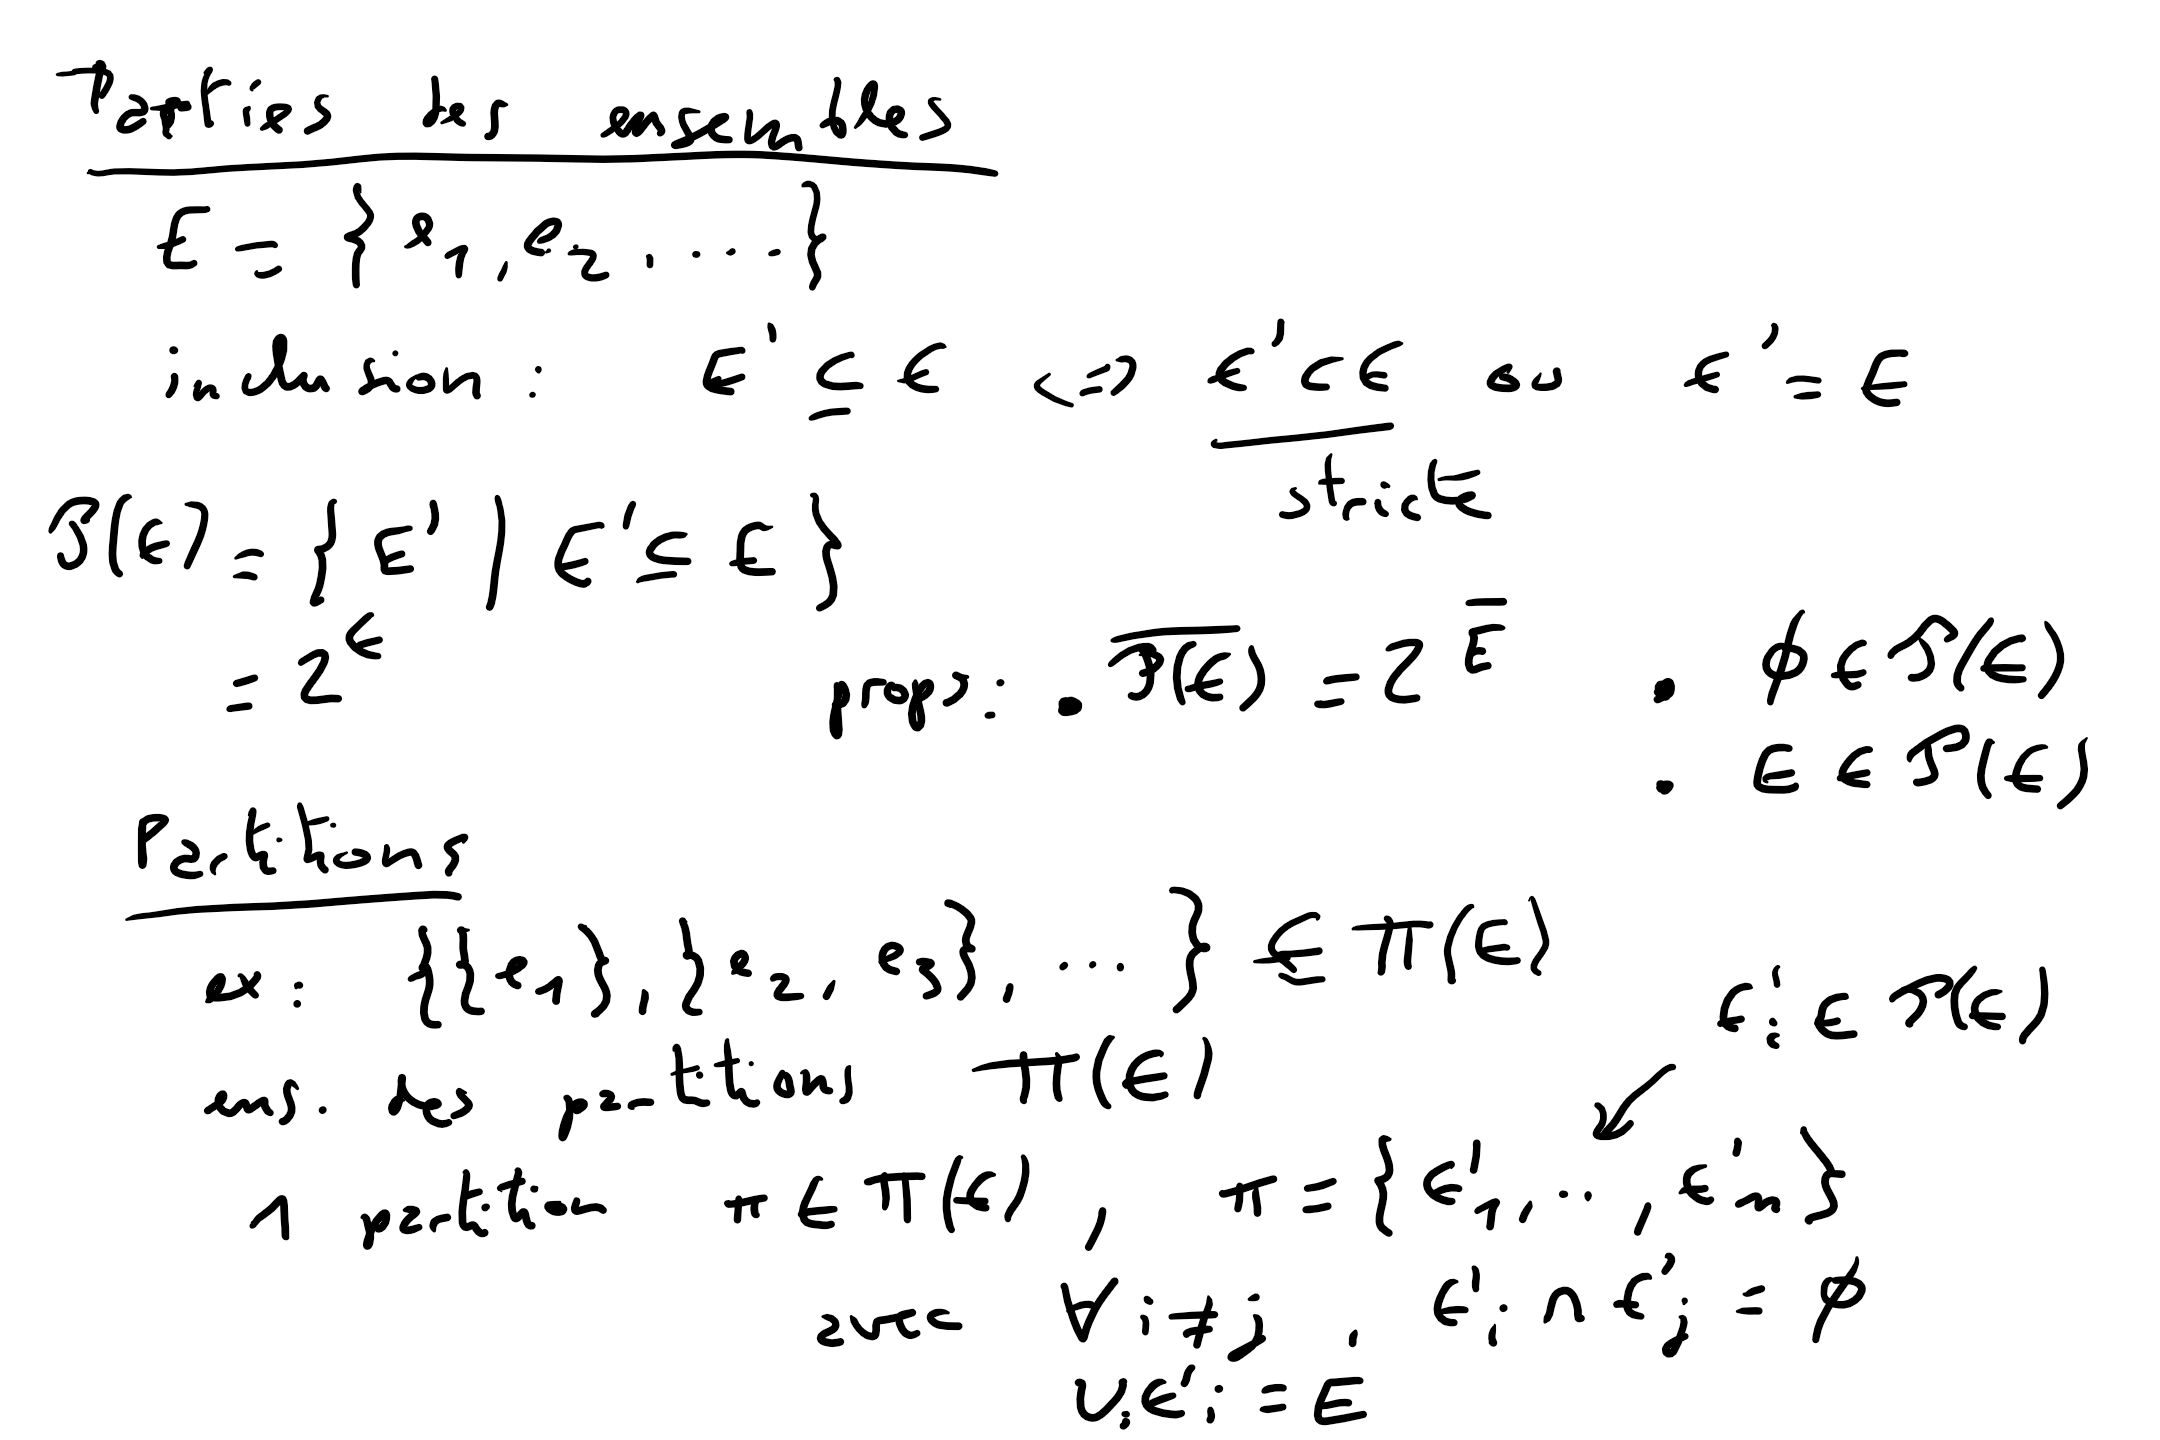 Parties des ensembles
E = { e₁, e₂, .... }
inclusion : E' ⊆ E <=> E' ⊂ E ou E' = E
stricte
𝒫(E) = { E' | E' ⊆ E }
= 2^E
props : • \overline{𝒫(E)} = 2^{\overline{E}} • ∅ ∈ 𝒫(E)
• E ∈ 𝒫(E)
Partitions
ex : {{e₁}, {e₂, e₃}, ... } ⊆ Π(E)
E'ᵢ ∈ 𝒫(E)
ens. des partitions Π(E)
1 partition π ∈ Π(E) , π = { E'₁, .. , E'ₙ }
avec ∀ i ≠ j , E'ᵢ ∩ E'ⱼ = ∅
∪ᵢ E'ᵢ = E